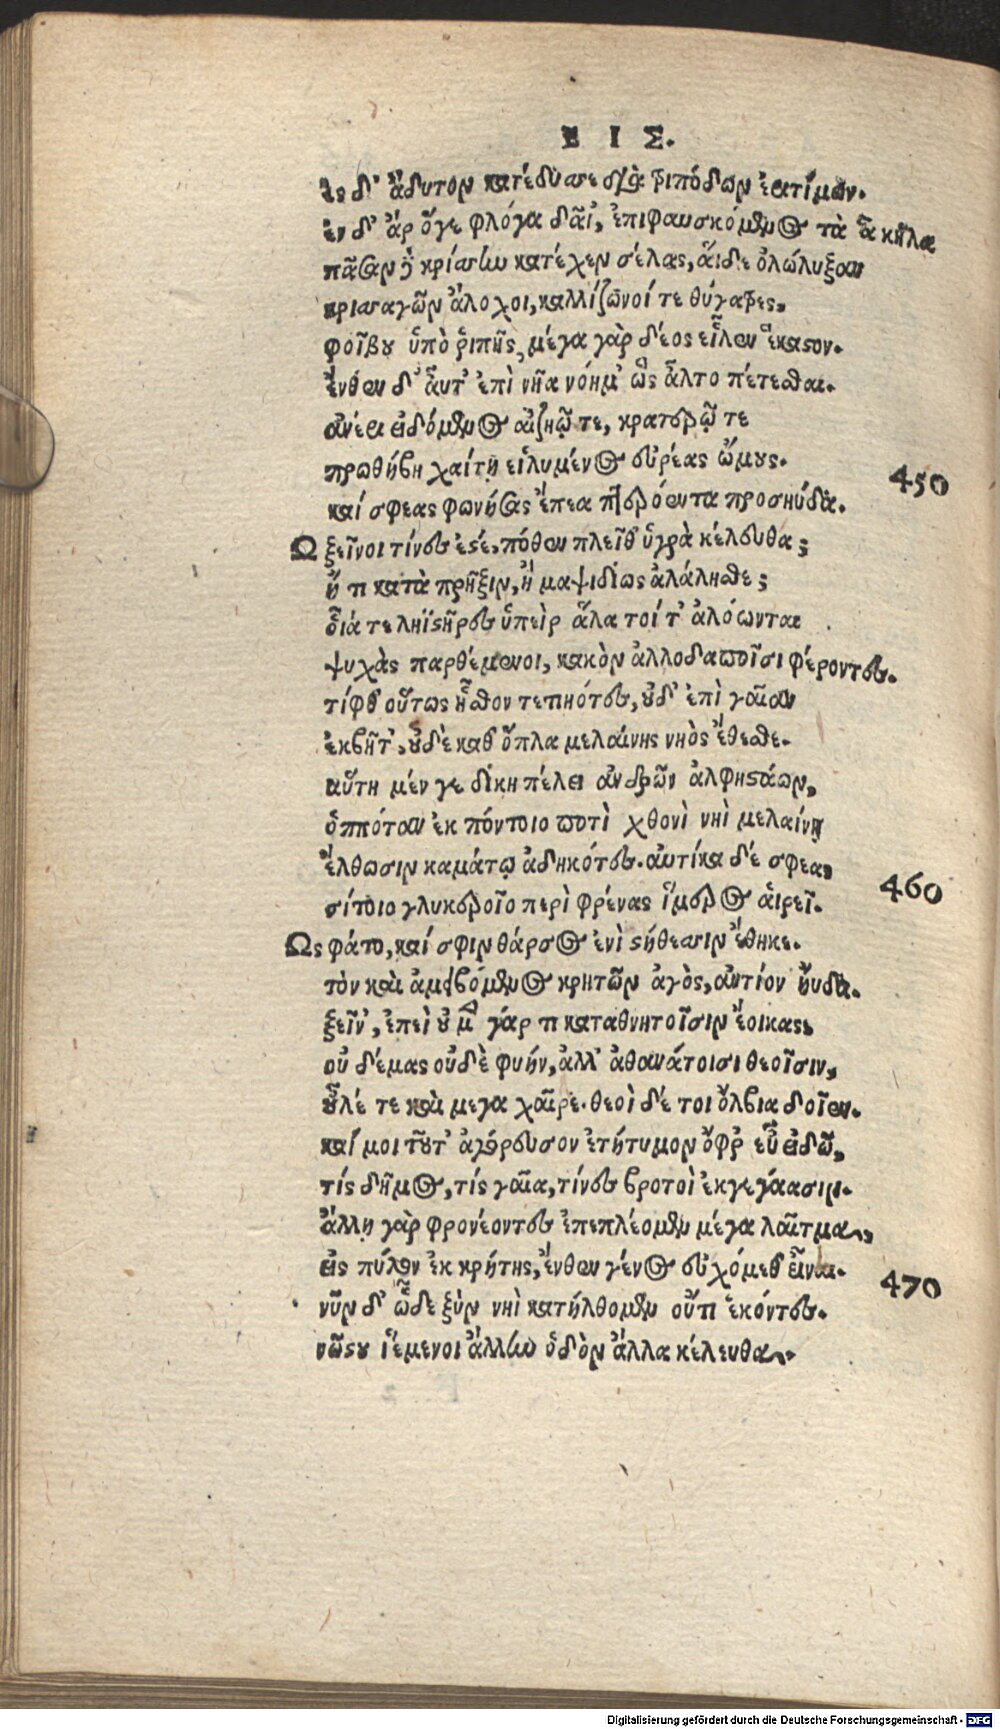 ΕΙΣ.
ἐς δ' ἄδυτον κατέδυσε διὰ τριπόδων ἐριτίμων.
ἐν δ' ἄρ ὅγε φλόγα δαῖ, ἐπιφαυσκόμενος τὰ ἃ κῆλα
πᾶσαν δὲ κρίσσην κατέχεν σέλας, αἵδε ὀλώλυξαν
κρισσαγῶν ἄλοχοι, καλλίζωνοί τε θύγατρες,
φοίβου ὑπὸ ῥιπῆς, μέγα γὰρ δέος εἷλεν ἕκαστον.
ἔνθεν δ' αὖτ' ἐπὶ νῆα νόημ' ὣς ἆλτο πέτεσθαι.
ἀνέρι εἰδόμενος αἰζηῷ τε, κρατερῷ τε
πρωθήβῃ χαίτῃ εἰλυμένος εὐρέας ὤμους.
450
καί σφεας φωνήσας ἔπεα πτερόεντα προσηύδα.
Ω ξεῖνοι τίνες ἐστέ, πόθεν πλεῖθ' ὑγρὰ κέλευθα;
ἤ τι κατὰ πρῆξιν, ἢ μαψιδίως ἀλάλησθε;
οἷά τε ληϊστῆρες ὑπεὶρ ἅλα τοί τ' ἀλόωνται
ψυχὰς παρθέμενοι, κακὸν ἀλλοδαποῖσι φέροντες.
τίφθ' οὕτως ἧσθον τετιηότες, οὐδ' ἐπὶ γαῖαν
ἐκβῆτ', οὐδὲ καθ' ὅπλα μελαίνης νηὸς ἔθεσθε.
αὕτη μέν γε δίκη πέλει ἀνδρῶν ἀλφηστάων,
ὁππόταν ἐκ πόντοιο ποτὶ χθονὶ νηὶ μελαίνῃ
ἔλθωσιν καμάτῳ ἀδηκότες. αὐτίκα δέ σφεας
460
σίτοιο γλυκεροῖο περὶ φρένας ἵμερος αἱρεῖ.
Ως φάτο, καί σφιν θάρσος ἐνὶ στήθεσσιν ἔθηκε.
τὸν καὶ ἀμειβόμενος κρητῶν ἀγὸς, ἀντίον ηὔδα.
ξεῖν', ἐπεὶ οὐ μὲν γάρ τι καταθνητοῖσιν ἔοικας,
οὐ δέμας οὐδὲ φυήν, ἀλλ' ἀθανάτοισι θεοῖσιν,
οὖλέ τε καὶ μεγα χαῖρε. θεοὶ δέ τοι ὄλβια δοῖεν.
καί μοι τοῦτ' ἀγόρευσον ἐτήτυμον ὄφρ' εὖ εἰδῶ,
τίς δῆμος, τίς γαῖα, τίνες βροτοὶ ἐκγεγάασιν.
ἄλλῃ γὰρ φρονέοντες ἐπεπλέομεν μέγα λαῖτμα,
εἰς πύλον ἐκ κρήτης, ἔνθεν γένος εὐχόμεθ' εἶναι.
470
νῦν δ' ὧδε ξὺν νηὶ κατήλθομεν οὔτι ἑκόντες.
νόστου ἱέμενοι ἄλλην ὁδὸν ἄλλα κέλευθα.
Digitalisierung gefördert durch die Deutsche Forschungsgemeinschaft - DFG